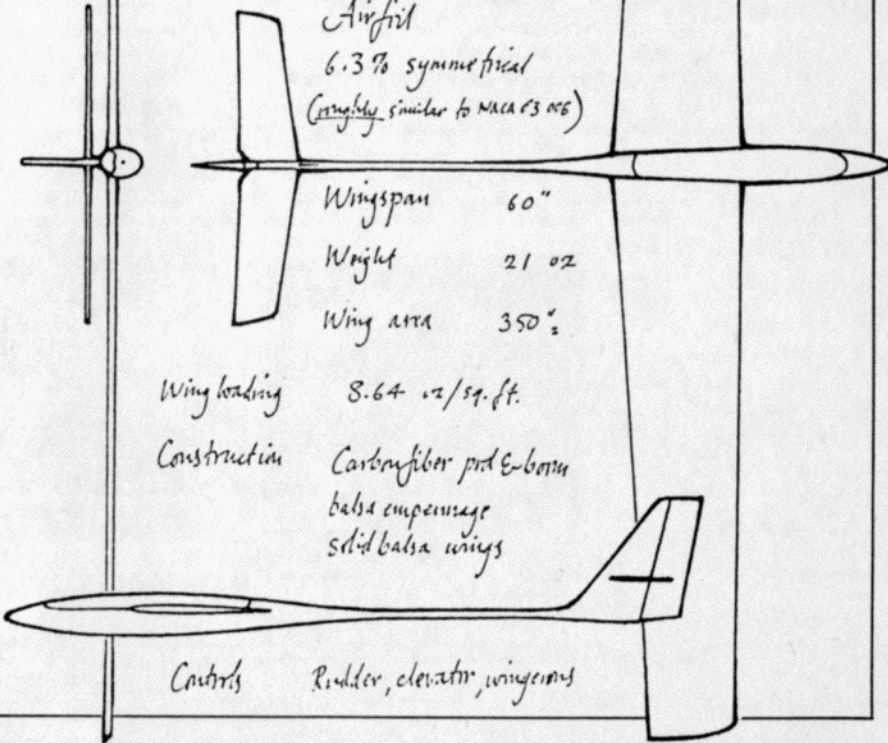 Airfoil
6.3% symmetrical
(roughly similar to NACA 63 006)
Wingspan 60"
Weight 21 oz
Wing area 350"²
Wing loading 8.64 oz/sq. ft.
Construction Carbonfiber pod & boom
balsa empennage
Solid balsa wings
Controls Rudder, elevator, wingerons